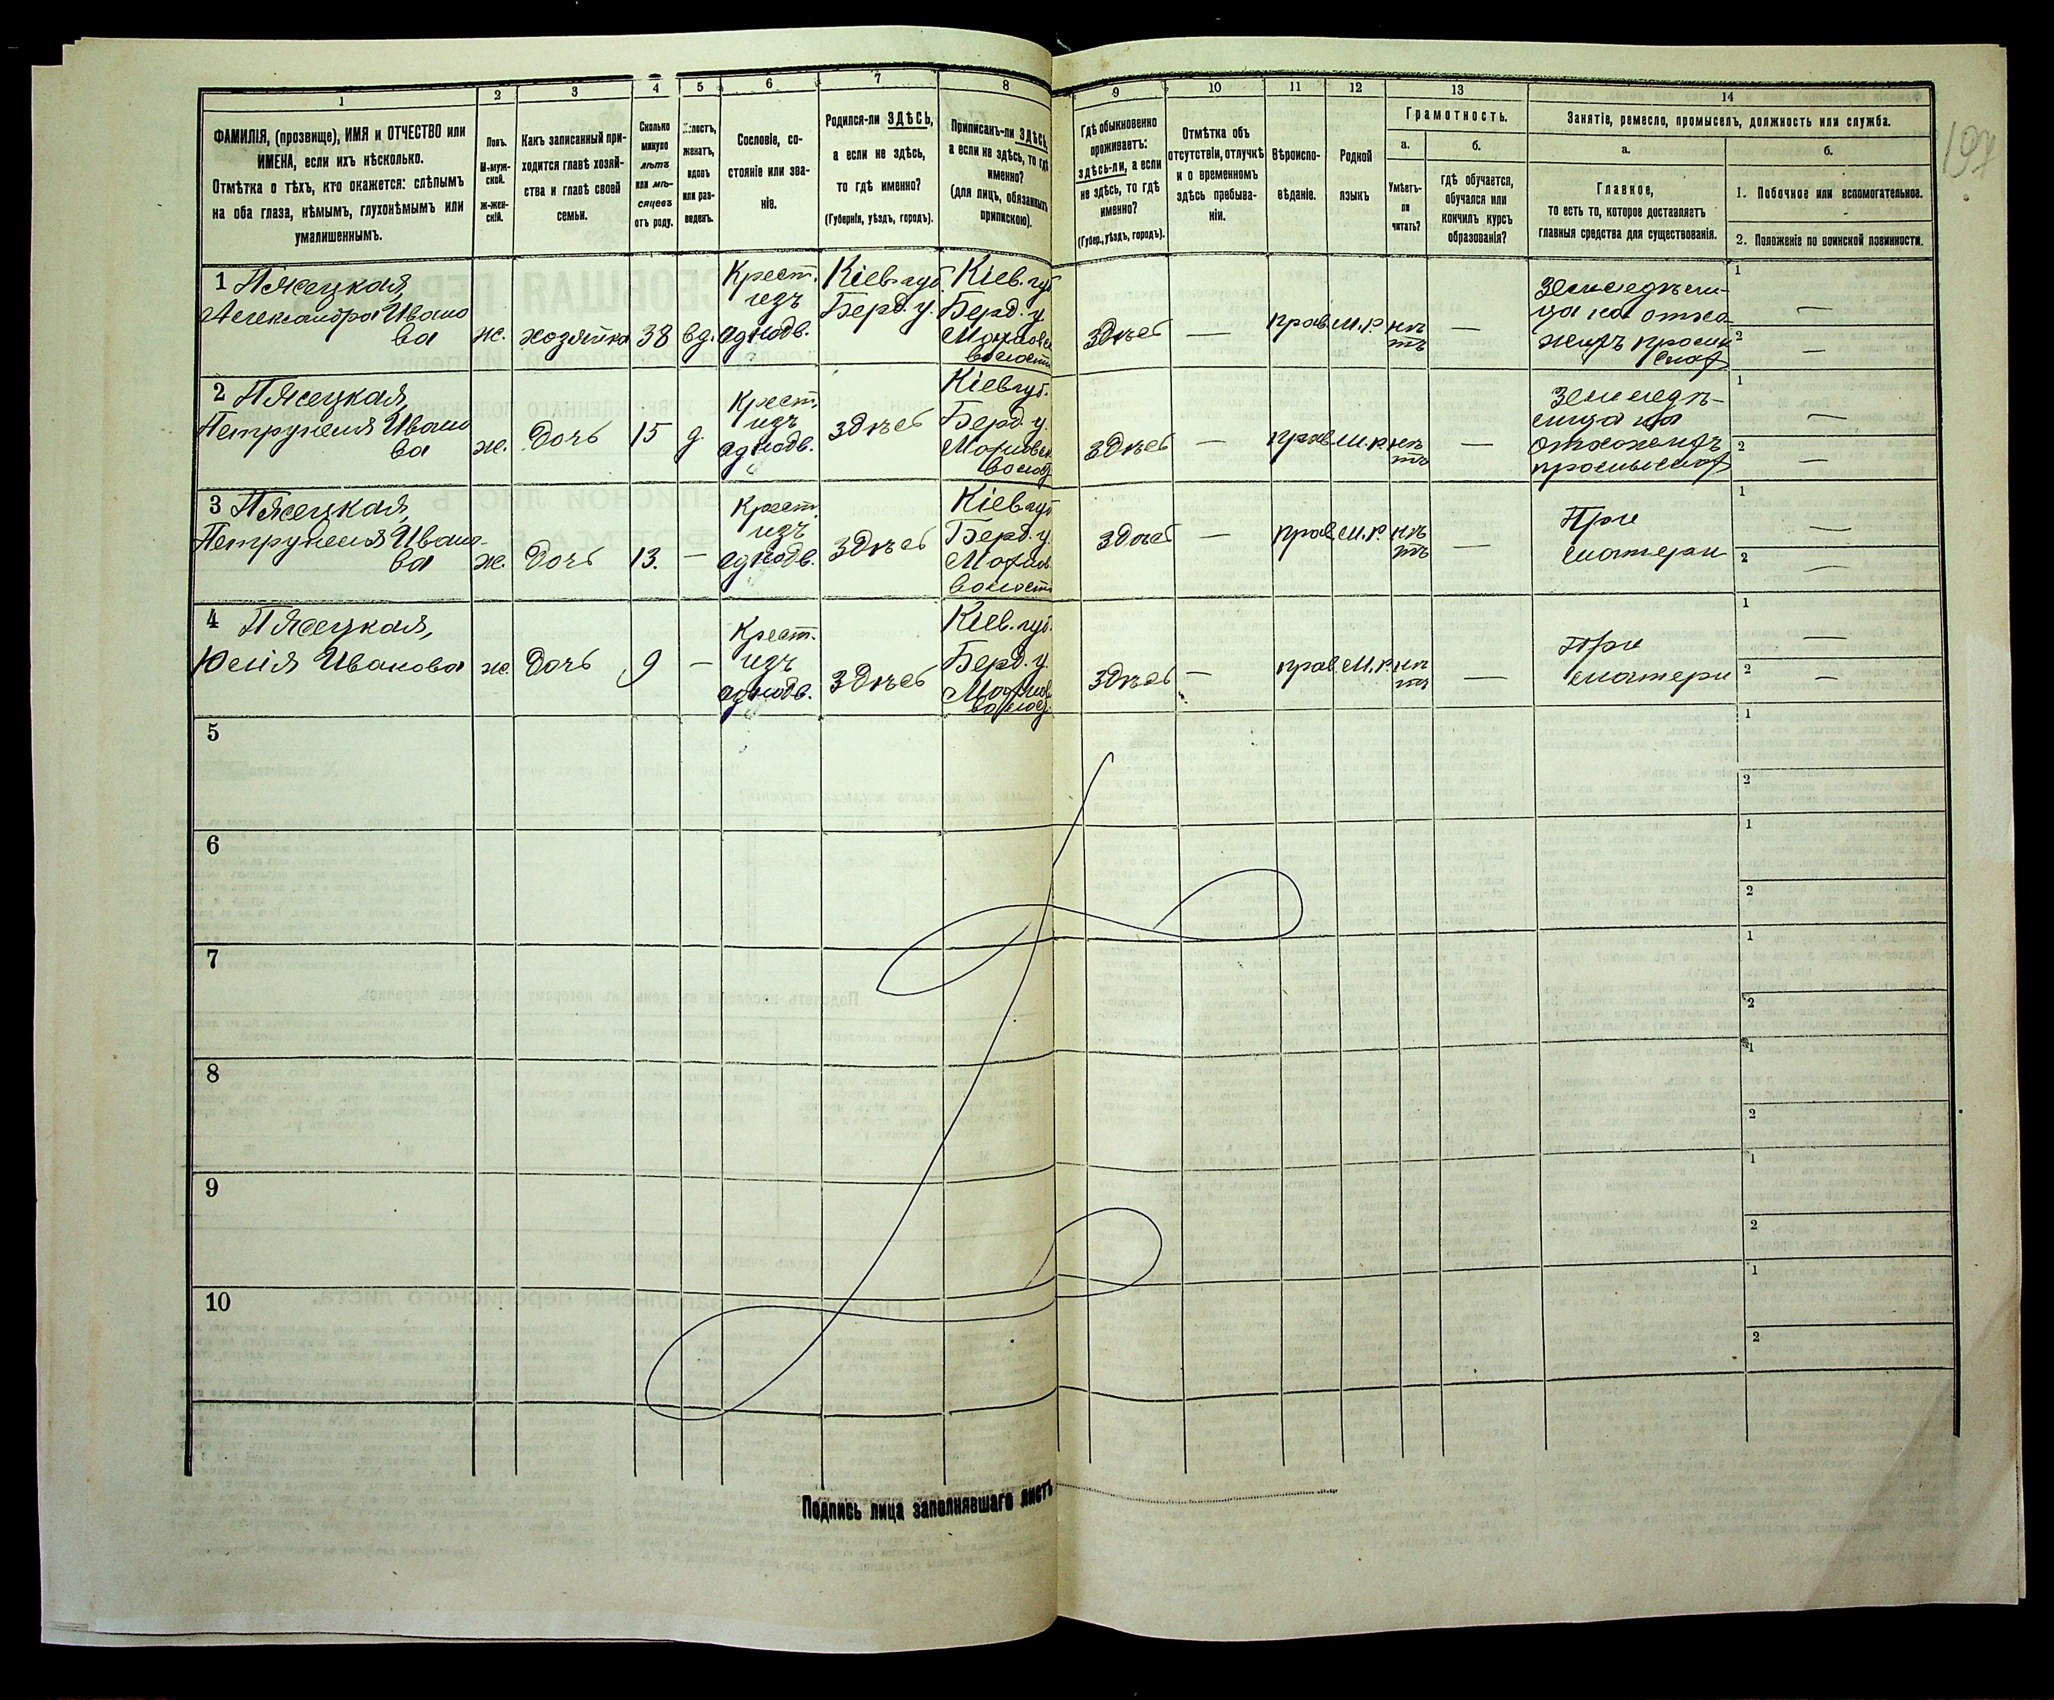 1 2 3 4 5 6 7 8 9 10 11 12 13 14
197
ФАМИЛІЯ, (прозвище), ИМЯ и ОТЧЕСТВО или
ИМЕНА, если ихъ нѣсколько.
Отмѣтка о тѣхъ, кто окажется: слѣпымъ
на оба глаза, нѣмымъ, глухонѣмымъ или
умалишеннымъ.
Полъ.
М-муж-
ской.
ж-жен-
скій.
Какъ записанный при-
ходится главѣ хозяй-
ства и главѣ своей
семьи.
Сколько
минуло
лѣтъ
или мѣ-
сяцевъ
отъ роду.
Холостъ,
женатъ,
вдовъ
или раз-
веденъ.
Сословіе, со-
стояніе или зва-
ніе.
Родился-ли ЗДѢСЬ,
а если не здѣсь,
то гдѣ именно?
(Губернія, уѣздъ, городъ).
Приписанъ-ли ЗДѢСЬ,
а если не здѣсь, то гдѣ
именно?
(для лицъ, обязанныхъ
припискою).
Гдѣ обыкновенно
проживаетъ:
здѣсь-ли, а если
не здѣсь, то гдѣ
именно?
(Губер., уѣздъ, городъ).
Отмѣтка объ
отсутствіи, отлучкѣ
и о временномъ
здѣсь пребыва-
ніи.
Вѣроиспо-
вѣданіе.
Родной
языкъ
Грамотность.
а.
Умѣетъ-
ли
читать?
б.
гдѣ обучается,
обучался или
кончилъ курсъ
образованія?
Занятіе, ремесло, промыселъ, должность или служба.
а.
Главное,
то есть то, которое доставляетъ
главныя средства для существованія.
б.
1. Побочное или вспомогательное.
2. Положеніе по воинской повинности.
1 Пясецкая,
Александра Ивано
ва
ж.
хозяйка
38
вд.
Крест.
изъ
однодв.
Кіев. губ.
Берд. у.
Кіев. губ
Берд. у.
Махнов
волость
Здѣсь
—
прав.
М.р.
нѣ
тъ
—
Земледѣли-
ца на отхо
жихъ промы
слах
1 —
2 —
2 Пясецкая,
Петрунеля Ивано
ва
ж.
Дочь
15
д.
Крест.
изъ
однодв.
Здѣсь
Кіев губ.
Берд. у.
Махновск
волост
Здѣсь
—
прав.
М.р.
нѣ
тъ
—
Земледѣ-
лица на
отхожихъ
промыслах
1 —
2 —
3 Пясецкая,
Петрунеля Ивано-
ва
ж.
Дочь
13.
—
Крест.
изъ
однодв.
Здѣсь
Кіев губ
Берд. у.
Махнов.
волость
Здѣсь
—
прав.
М.р.
нѣ
тъ
—
При
матери
1 —
2 —
4 Пясецкая,
Юлія Иванова
ж.
Дочь
9
—
Крест.
изъ
однодв.
Здѣсь
Кіев. губ.
Берд. у.
Махнов
волос.
Здѣсь
—
прав.
М.р.
нѣ
тъ
—
При
матери
1 —
2 —
5
1
2
6
1
2
7
1
2
8
1
2
9
1
2
10
1
2
Подпись лица заполнявшаго листъ